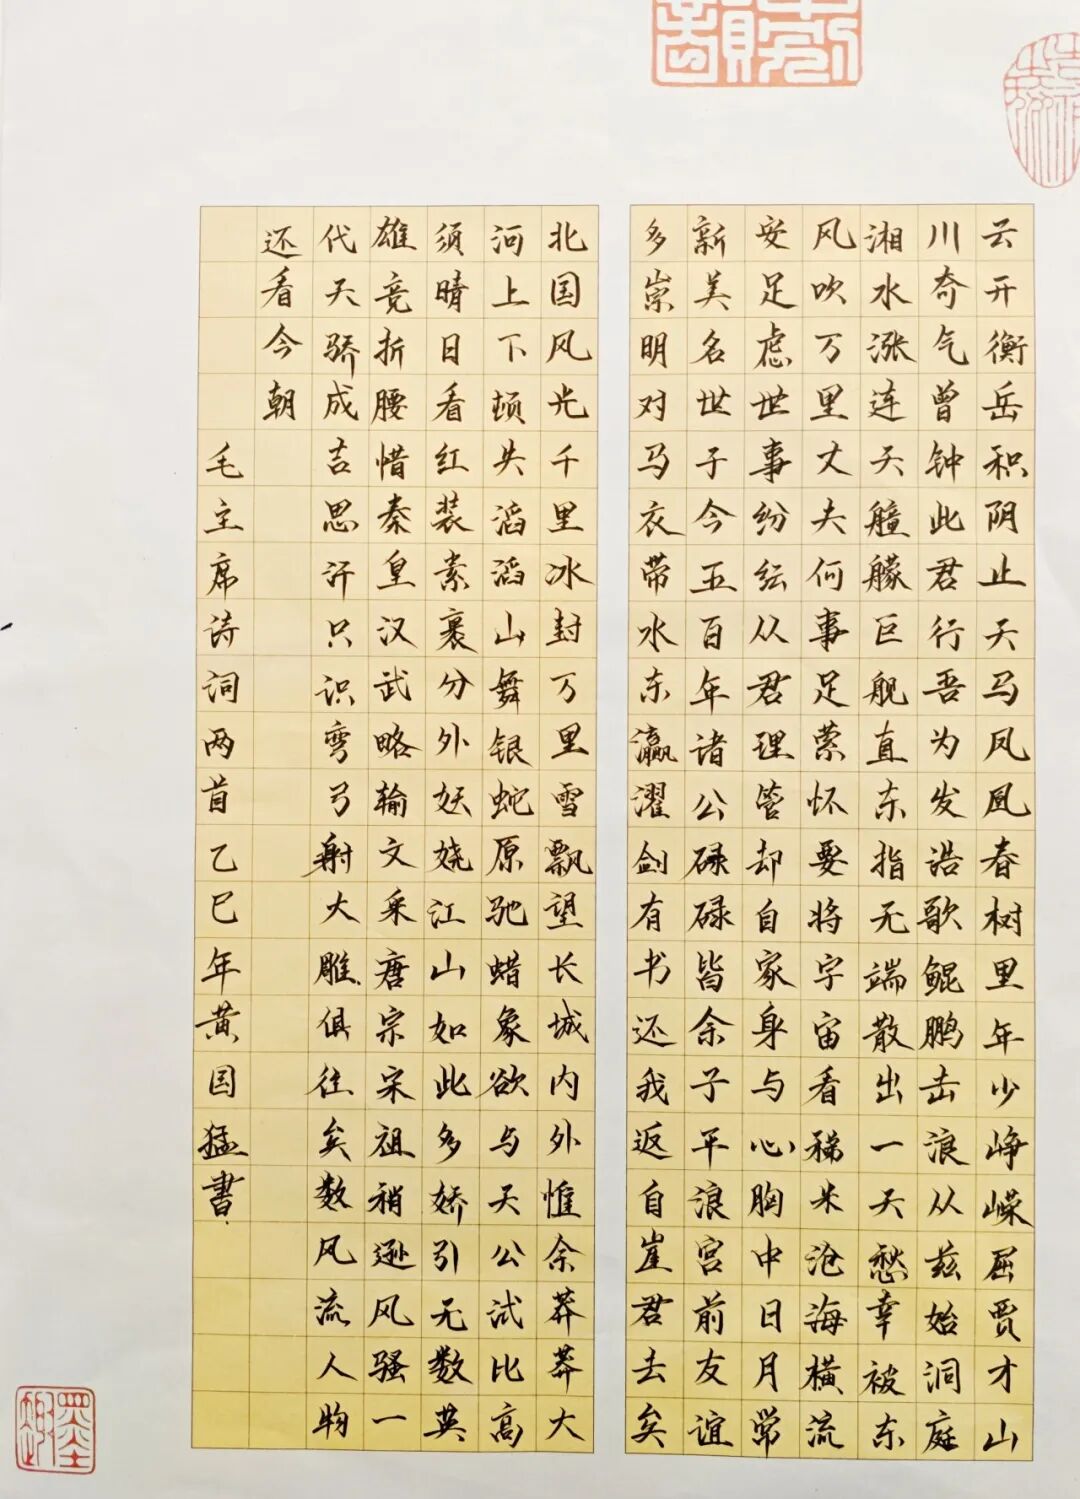 云开衡岳积阴止天马凤凰春树里年少峥嵘屈贾才山
川奇气曾钟此君行吾为发浩歌鲲鹏击浪从兹始洞庭
湘水涨连天艟艨巨舰直东指无端散出一天愁幸被东
风吹万里丈夫何事足萦怀要将宇宙看稊米沧海横流
安足虑世事纷纭从君理管却自家身与心胸中日月常
新美名世子今五百年诸公碌碌皆余子平浪宫前友谊
多崇明对马衣带水东瀛濯剑有书还我返自崖君去矣
北国风光千里冰封万里雪飘望长城内外惟余莽莽大
河上下顿失滔滔山舞银蛇原驰蜡象欲与天公试比高
须晴日看红装素裹分外妖娆江山如此多娇引无数英
雄竞折腰惜秦皇汉武略输文采唐宗宋祖稍逊风骚一
代天骄成吉思汗只识弯弓射大雕俱往矣数风流人物
还看今朝
毛主席诗词两首乙巳年黄国猛書